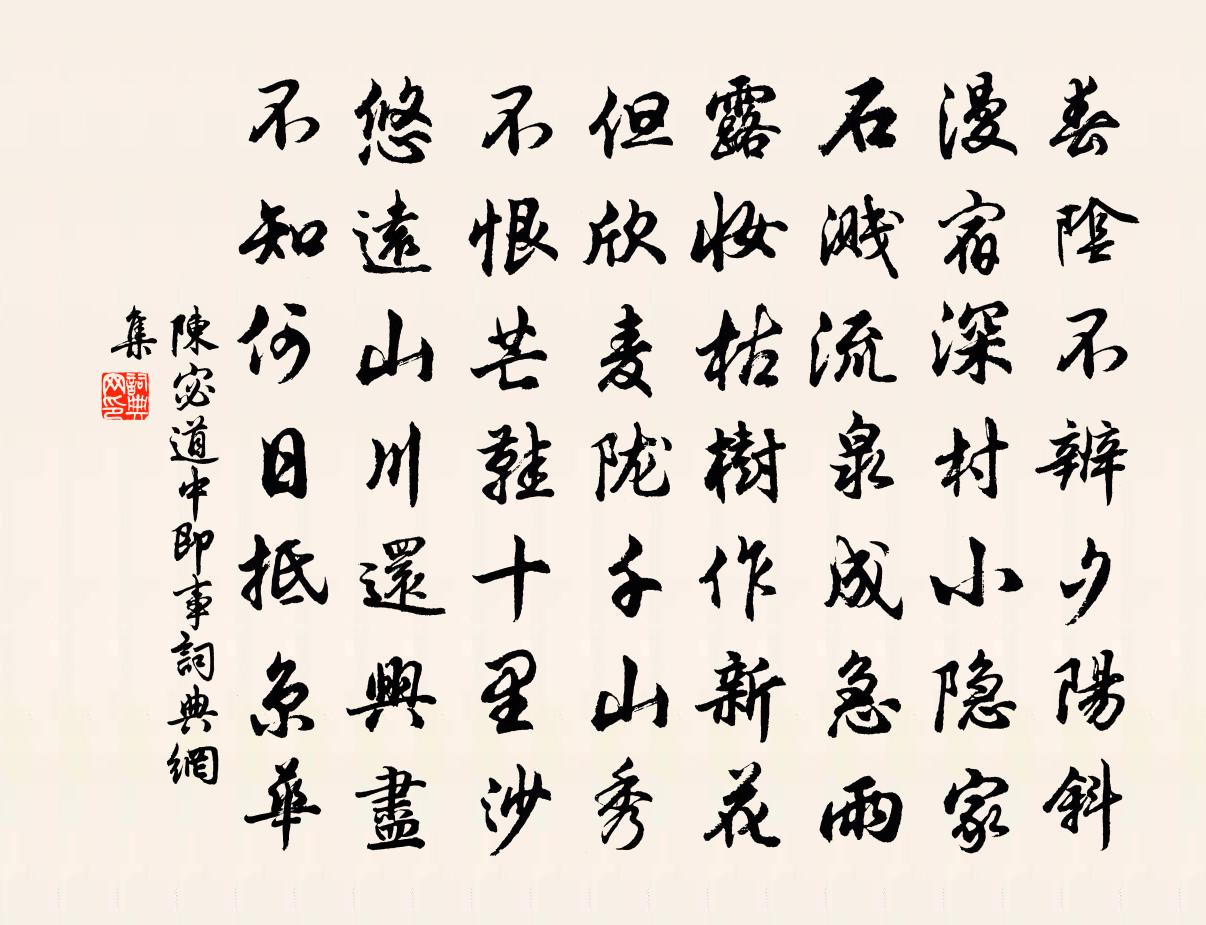 春陰不辨夕陽斜
漫宿深村小隐家
石濺流泉成急雨
露妝枯樹作新花
但欣麦陇千山秀
不恨芒鞋十里沙
悠遠山川還興盡
不知何日抵京華
陳宓道中即事詞典網
集
詞典
网印